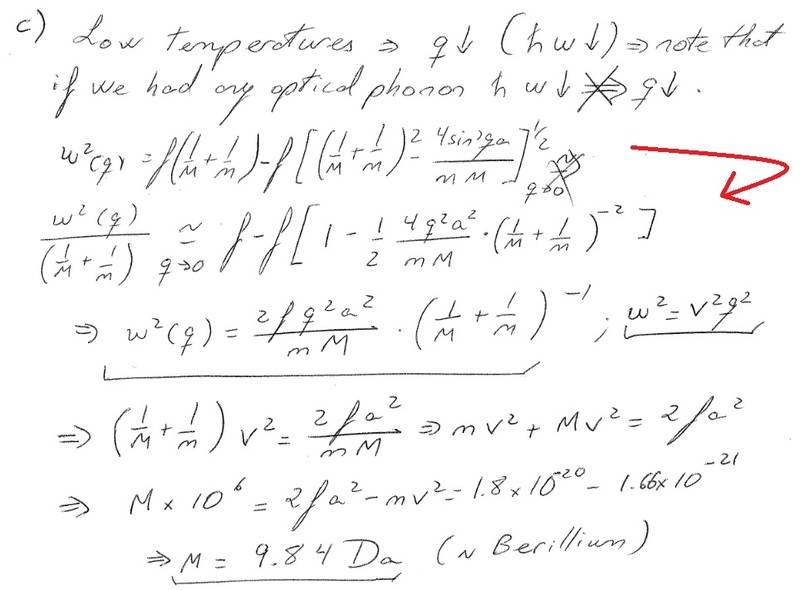 c) Low temperatures ⇒ q↓ (ħw↓) ⇒ note that
if we had any optical phonon ħ w↓ ⇏ q↓.
w²(q) = f(1/M + 1/m) - f[(1/M + 1/m)² - 4sin²qa/mM]^1/2 q→0
w²(q)/(1/M + 1/m) ≃ q→0 f - f[1 - 1/2 4q²a²/mM · (1/M + 1/m)^-2]
⇒ w²(q) = 2fq²a²/mM · (1/M + 1/m)^-1 ; w² = v²q²
⇒ (1/M + 1/m) v² = 2fa²/mM ⇒ mv² + Mv² = 2fa²
⇒ M × 10⁶ = 2fa² - mv² = 1.8×10^-20 - 1.66×10^-21
⇒ M = 9.84 Da (~ Berillium)